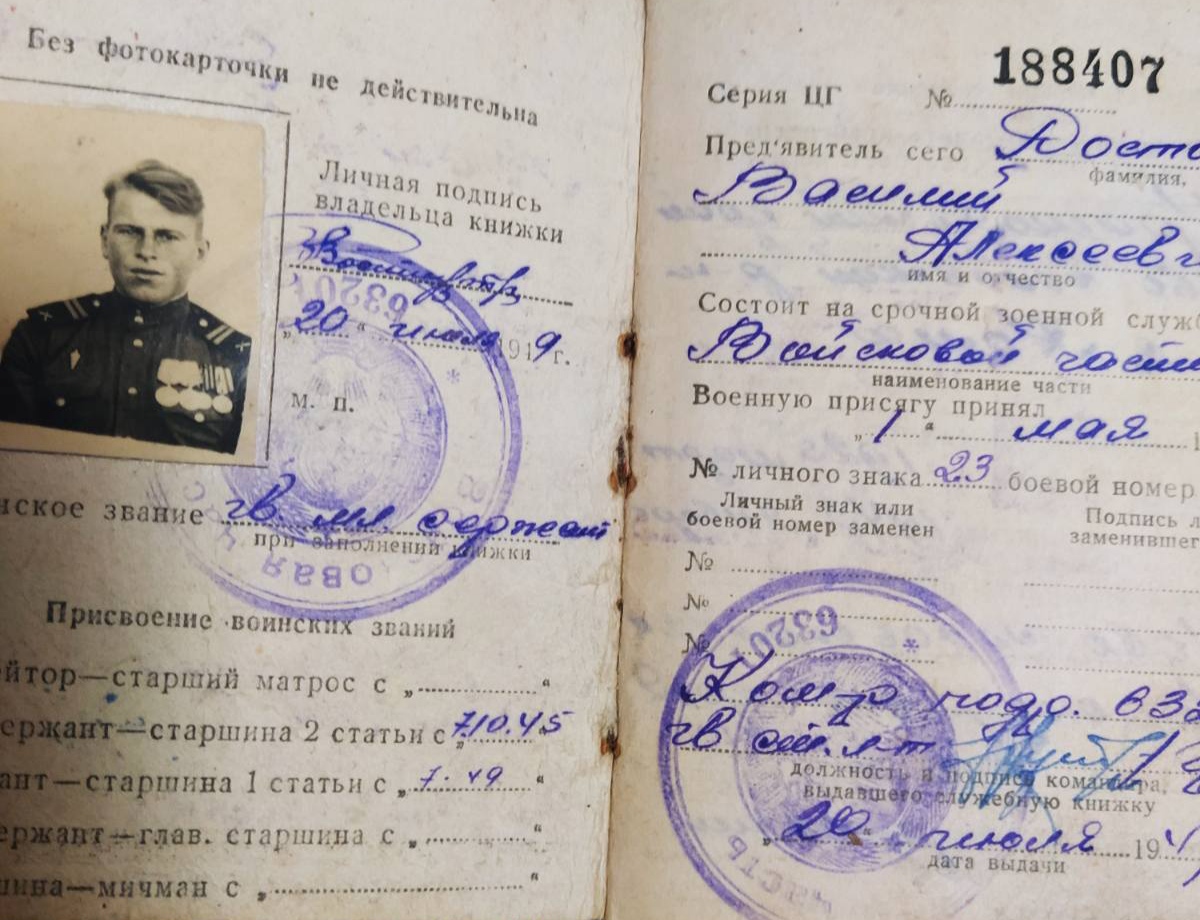 Без фотокарточки не действительна
Личная подпись
владельца книжки
„20“ июля 1949 г.
м. п.
нское звание гв мл. сержант
при заполнении книжки
Присвоение воинских званий
ейтор—старший матрос с „ “
ержант—старшина 2 статьи с „7.10.45“
ант—старшина 1 статьи с „7.49“
ержант—глав. старшина с „ “
шина—мичман с „ “
188407
Серия ЦГ №
Пред'явитель сего Досто
фамилия,
Василий
Алексеев
имя и отчество
Состоит на срочной военной служб
Войсковой част
наименование части
Военную присягу принял
„1“ мая 1
№ личного знака 23 боевой номер
Личный знак или
боевой номер заменен
Подпись л
заменившег
№
№
№
Ком-р подр. 632
гв ст. л-т
должность и подпись командира,
выдавшего служебную книжку
„20“ июля 194
дата выдачи
6320
овая ч
6320
часть